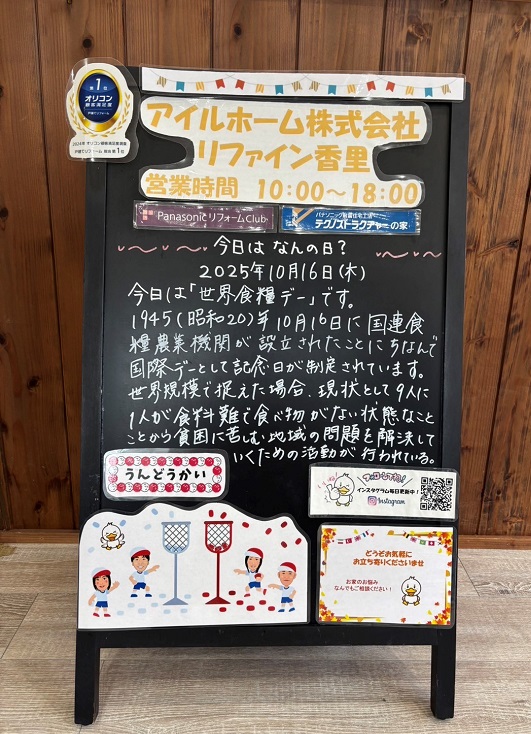 第1位
オリコン
顧客満足度
戸建てリフォーム
2024年 オリコン顧客満足度調査
戸建てリフォーム 総合 第1位
アイルホーム株式会社
リファイン香里
営業時間 10:00～18:00
PanasonicリフォームClub
パナソニック耐震住宅工法
テクノストラクチャーの家
今日は なんの日?
2025年10月16日(木)
今日は「世界食糧デー」です。
1945(昭和20)年10月16日に国連食
糧農業機関が設立されたことにちなんで
国際デーとして記念日が制定されています。
世界規模で捉えた場合、現状として9人に
1人が食料難で食べ物がない状態なこと
ことから貧困に苦しむ地域の問題を解決して
いくための活動が行われている。
うんどうかい
フォローしてね!
インスタグラム毎日更新中!
Instagram
どうぞお気軽に
お立ち寄りくださいませ
お家のお悩み
なんでもご相談ください!